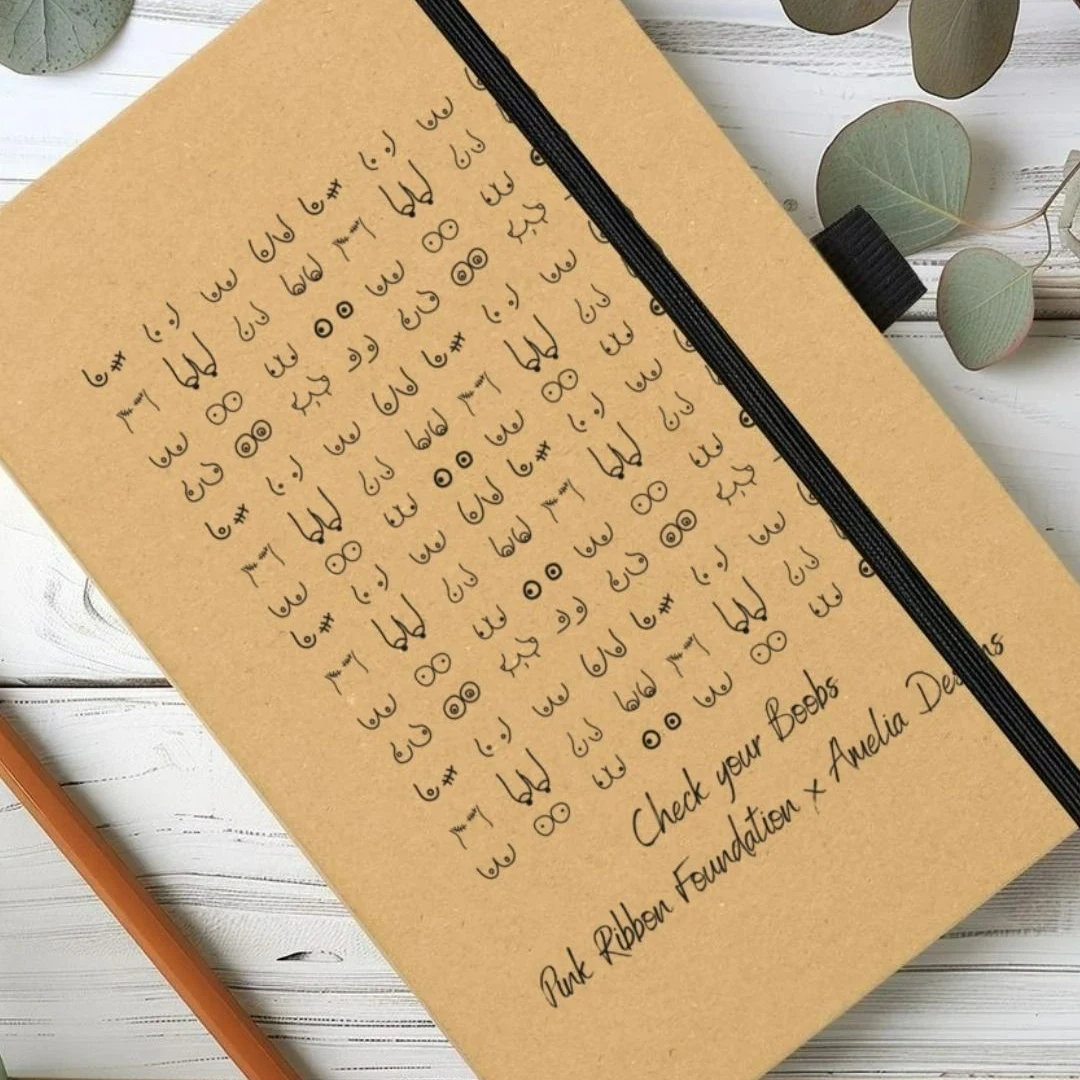 Check your Boobs
Pink Ribbon Foundation x Amelia